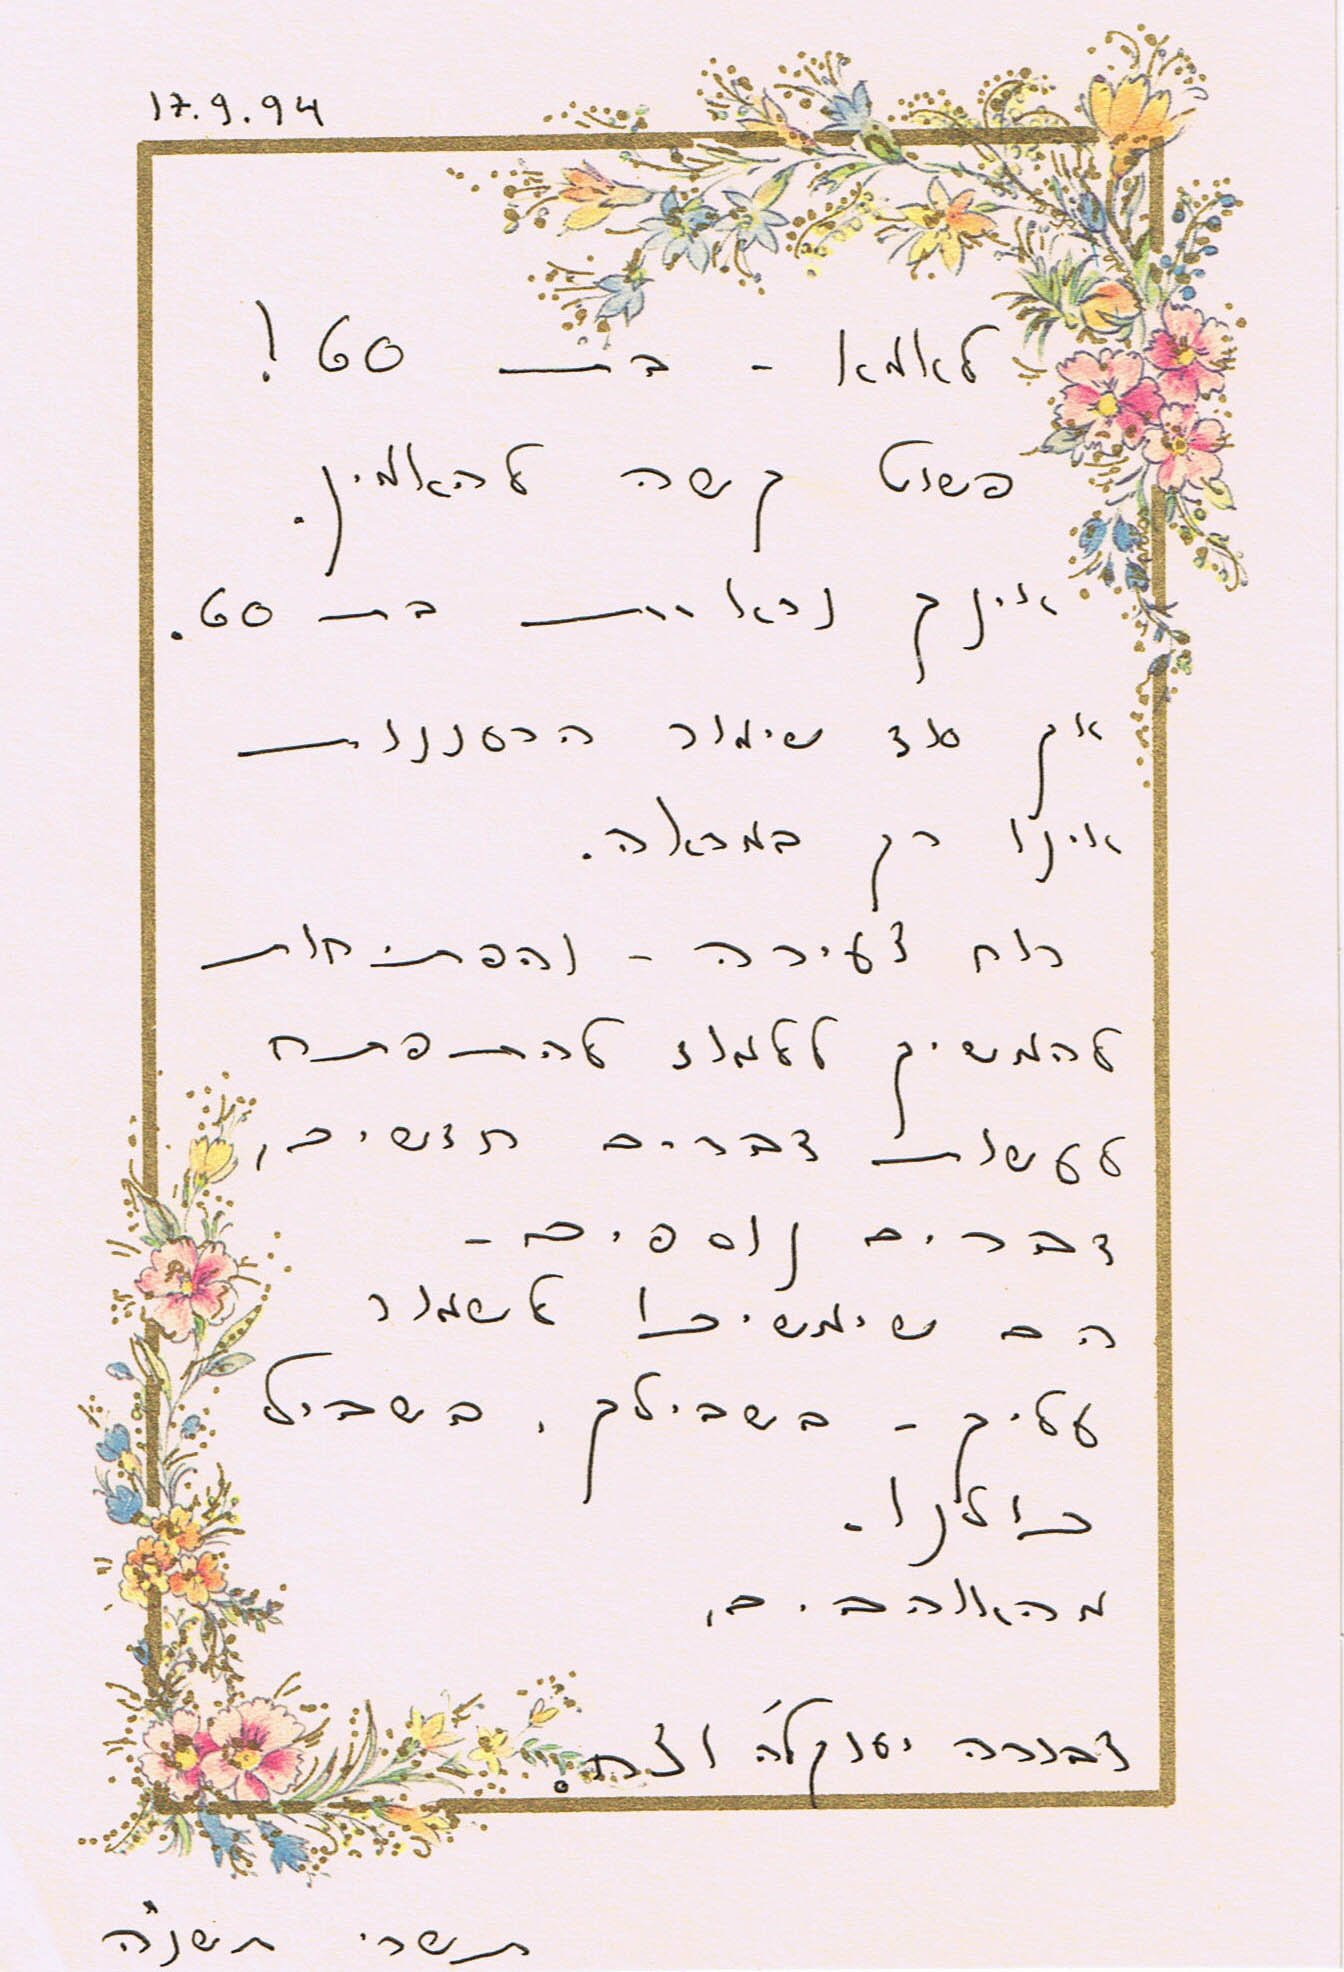 17.9.94
לאמא - בת 60!
פשוט קשה להאמין.
אינך נראית בת 60.
אך סוד שימור הרעננות
אינו רק במראה.
רוח צעירה - והפתיחות
להמשיך ללמוד להתפתח
לעשות דברים חדשים,
דברים נוספים -
הם שימשיכו לשמור
עליך - בשבילך, בשביל
כולנו.
מהאוהבים,
דבורה יענקל'ה
תשרי תשנ"ה